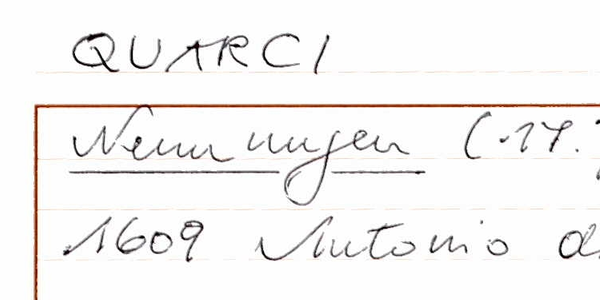 QUARCI
Nennungen (17.
1609 Antonio d